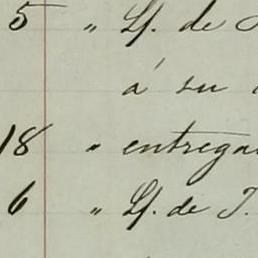 5 " Lf. de
á su
18 " entrega
6 " Lf. de J.